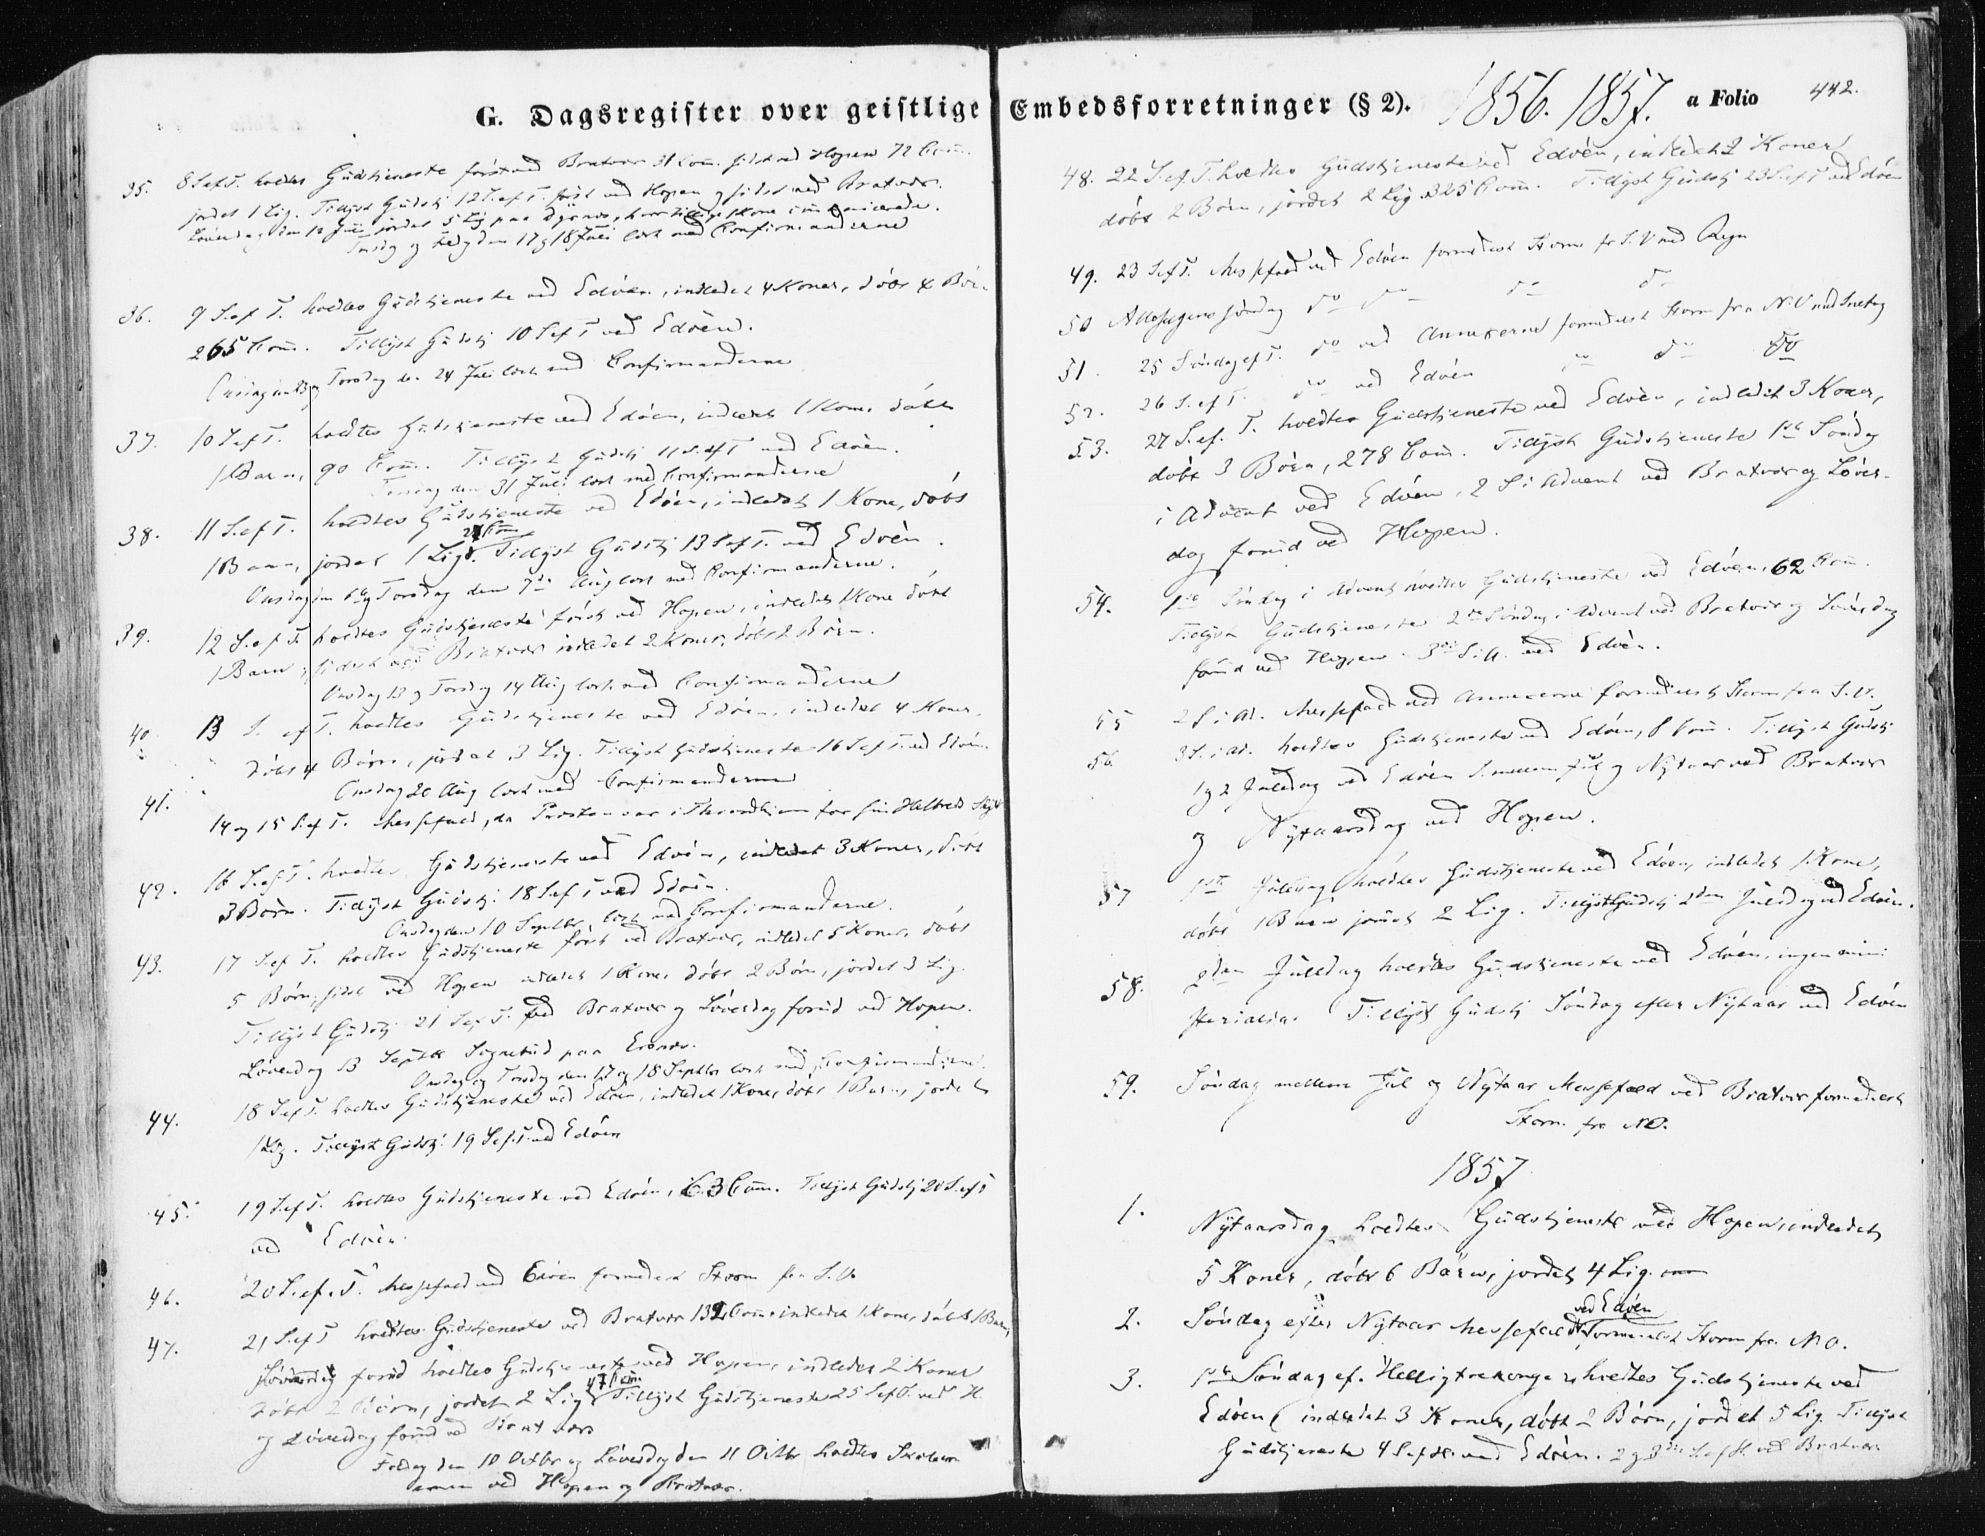 G. Dagsregister over geistlige Embedsforretninger (§ 2). 1856. 1857. a Folio 442.
35. 8 S.ef.T. holdtes Gudstjeneste først ved Bratvær 31 Com. sidst ved Hopen 72 Com.
jordet 1 Lig. Tillyst Gudstj 12 S.ef T. først ved Hopen og sidst ved Bratvær.
Løverdag den 12 Juli jordet 5 Lig paa
Torsdag og Fredag den 17 og 18 Juli læst med Confirmanderne
36. 9 S.ef T. holdtes Gudstjeneste ved Edöen, indledet 4 Koner, döbt 4 Börn
265 Com. Tillyst Gudstj 10 S ef T ved Edöen.
Onsdag og Torsdag d. 24 Juli læst med Confirmanderne
37. 10 S.ef T. holdtes Gudstjeneste ved Edöen, indledt 1 Kone döbt
1 Barn, 90 Com. Tillyst Gudstj 11 S.ef T ved Edöen.
Torsdag den 31 Juli læst med Confirmanderne
38. 11 S.ef T. holdtes Gudstjeneste ved Edöen, indledet 1 Kone, döbt
1 Barn, jordet 1 Lig. Tillyst Gudstj 13 S ef T. ved Edöen.
Onsdag den 6 og Torsdag den 7de Aug læst med Confirmanderne.
39. 12 S.ef T. holdtes Gudstjeneste först ved Hopen, indledet 1 Kone döbt
1 Barn, sidst ved Bratvær indledet 2 Koner, döbt 2 Börn.
Onsdag 13 og Torsdag 14 Aug læst med Confirmanderne
40. 13 S. ef T. holdtes Gudstjeneste ved Edöen, indledet 4 Koner,
döbt 4 Börn, jordet 3 Lig. Tillyst Gudstjeneste 16 S ef T. ved Edöen.
Onsdag 20 Aug læst med Confirmanderne
41. 14 og 15 S.ef T. Messefald, da Præsten var i Throndhjem for sin Helbreds Skyld
42. 16 S.ef T. holdtes Gudstjeneste ved Edöen, indledet 3 Koner, döbt
3 Börn. Tillyst Gudstj: 18 S.ef T ved Edöen.
Onsdag den 10 Septbr læst med Confirmanderne.
43. 17 S.ef T. holdtes Gudstjeneste först ved Bratvær, indledet 5 Koner, döbt
5 Börn, sidst ved Hopen indledet 1 Kone, döbt 2 Börn, jordet 3 Lig.
Tillyst Gudstj 21 S.ef T. ved Bratvær og Löverdag forud ved Hopen.
Löverdag 13 Septbr Sognebud paa
Onsdag og Torsdag den 17 og 18 Septbr læst med Confirmanderne.
44. 18 S.ef T. holdtes Gudstjeneste ved Edöen, indledet 1 Kone, döbt 1 Barn, jordet
1 Lig. Tillyst Gudstj: 19 S.ef.T. ved Edöen
45. 19 S.ef T. holdtes Gudstjeneste ved Edöen, 63 Com. Tillyst Gudstj 20 S.ef T
ved Edöen.
46. 20 S.ef.T. Messefald ved Edöen formedelst Storm fra S.V.
47. 21 S.ef T holdtes Gudstjeneste ved Bratvær 132 Com. indledet 1 Kone, döbt 1 Barn,
Löverdag forud holdtes Gudstjeneste ved Hopen, indledet 2 Koner
döbt 2 Börn, jordet 2 Lig 47 Com. Tillyst Gudstjeneste 25 S.ef T. ved H.
og Löverdag forud ved Bratvær
Fredag den 10 Octbr og Löverdag den 11 Octbr holdtes
ved Hopen og Bratvær.
48. 22 S.ef.T. holdtes Gudstjeneste ved Edöen, indledet 2 Koner
döbt 2 Börn, jordet 2 Lig 325 Com. Tillyst Gudstj 23 S.ef T ved Edöen
49. 23 S.ef T. Messefald ved Edöen formedelst Storm fr S.V med Regn
50 Allehelgens söndag do do do do
51. 25 Söndag ef T. do ved Annexerne formedelst Storm fra N.V med Snetog
52. 26 S.ef T. do ved Edöen do do do
53. 27 S.ef. T. holdtes Gudstjeneste ved Edöen, indledet 3 Koner,
döbt 3 Börn, 278 Com. Tillyst Gudstjeneste 1ste Söndag
i Advent ved Edöen, 2 S i Advent ved Bratvær og Löver-
dag forud ved Hopen.
54. 1ste Söndag i Advent holdtes Gudstjeneste ved Edöen, 62 Com.
Tillyst Gudstjeneste 2den Söndag i Advent ved Bratvær og Löverdag
forud ved Hopen. 3die S i A. ved Edöen.
55 2 S i Ad. Messefald ved Annexerne formedelst Storm fra S.V.
56. 3 S. i Ad. holdtes Gudstjeneste ved Edöen, 8 Com. Tillyst Gudstj
1 og 2 Juledag ved Edöen S. mellem Jul og Nytaar ved Bratvær
og Nytaarsdag ved Hopen.
57 1ste Juledag holdtes Gudstjeneste ved Edöen, indledet 1 Kone,
döbt 1 Barn jordet 2 Lig. Tillyst Gudstj 2den Juledag ved Edöen.
58. 2den Juledag holdtes Gudstjeneste ved Edöen, ingen mini-
sterialia. Tillyst Gudstj Söndag efter Nytaar ved Edöen
59. Söndag mellem Jul og Nytaar Messefald ved Bratvær formedelst
Storm fra NO.
1857
1. Nytaarsdag holdtes Gudstjeneste ved Hopen, indledet
5 Koner, döbt 6 Börn, jordet 4 Lig.
2. Söndag efter Nytaar Messefald ved Edöen formedelst Storm fra NO.
3. 1ste Söndag ef. Helligtrekonger holdtes Gudstjeneste ved
Edöen indledet 3 Koner, döbt 2 Börn, jordet 5 Lig. Tillyst
Gudstjeneste 4 S ef H. ved Edöen. 2 og 3die S ef H. ved Bratvær